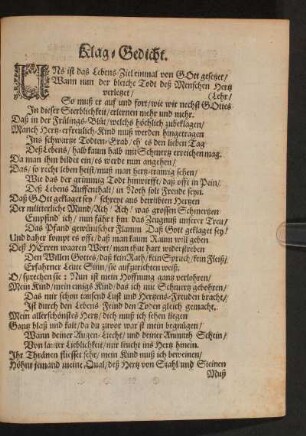 Klag-Gedicht.
UNs ist das Lebens-Ziel einmal von GOtt gesetzet/
Wann nun der bleiche Todt deß Menschen Hertz
verletzet/
So muß er auf und fort/ wie wir nechst GOttes Lehr/
In dieser Sterblichkeit/ erlernen mehr und mehr.
Daß in der Frülings-Blüt/ welchs höchlich zubeklagen/
Manch Hertz-erfreulich-Kind muß werden hingetragen
Ins schwartze Todten-Grab/ eh es den lieben Tag
Deß Lebens/ halb kaum halb mit Schmertz erreichen mag.
Da man ihm bildet ein/ es werde nun angehen/
Das/ so recht leben heist/ muß man hertz-traurig sehen/
Wie das der grimmig Todt hinwirfft/ daß offt in Pein/
Deß Lebens Auffenthalt/ in Noth soll Freude seyn.
Daß GOtt geklaget sey/ schreyt aus betrübten Hertzen
Der mütterliche Mund/ Ach/ Ach/ was grossen Schmertzen
Empfind ich/ nun fähret hin das Zeugnuß unserer Treu/
Das Pfand gewünschter Flamm/ Daß Gott geklaget sey!
Und daher kompt es offt/ daß man kaum Raum will geben
Deß HErren waaren Wort/ man thut hart widerstreben
Den Willen Gottes/ daß kein Rath/ kein Spruch/ kein Fleiß/
Erfahrner Leute Sinn/ sie aufgerichten weiß;
O/ sprechen sie: Nun ist mein Hoffnung gang verlohren/
Mein Kind/ mein einigs Kind/ das ich mit Schmertz gebohren/
Das mir schier tausend Lust und Hertzens-Freuden bracht/
Ist durch den Lebens Feind den Todten gleich gemacht.
Mein allerschönstes Hertz/ doch muß ich sehen ligen
Gantz blaß und kalt/ da du zuvor war ist mein begnügen/
Wann deiner Augen-Liecht/ und deiner Anmuth Schein/
Von lauter Lieblichkeit/ mir leucht ins Hertz hinein.
Ihr Thränen fliesset sehr/ mein Kind muß ich beweinen/
Höhnt jemand meine Qual/ deß Hertz von Stahl und Steinen
Muß